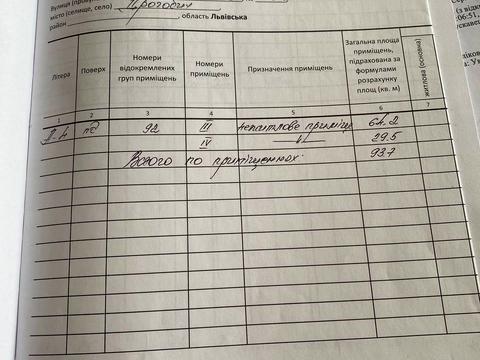 Вулиця
місто (селище, село) Дрогобич
район , область Львівська
Літера
Поверх
Номери відокремлених груп приміщень
Номери приміщень
Призначення приміщень
Загальна площа приміщень, підрахована за формулами розрахунку площ (кв. м)
житлова (основна)
1 2 3 4 5 6 7
92 III нежитлове приміщ 64.2
IV —"— 29.5
Всього по приміщеннях: 93.7